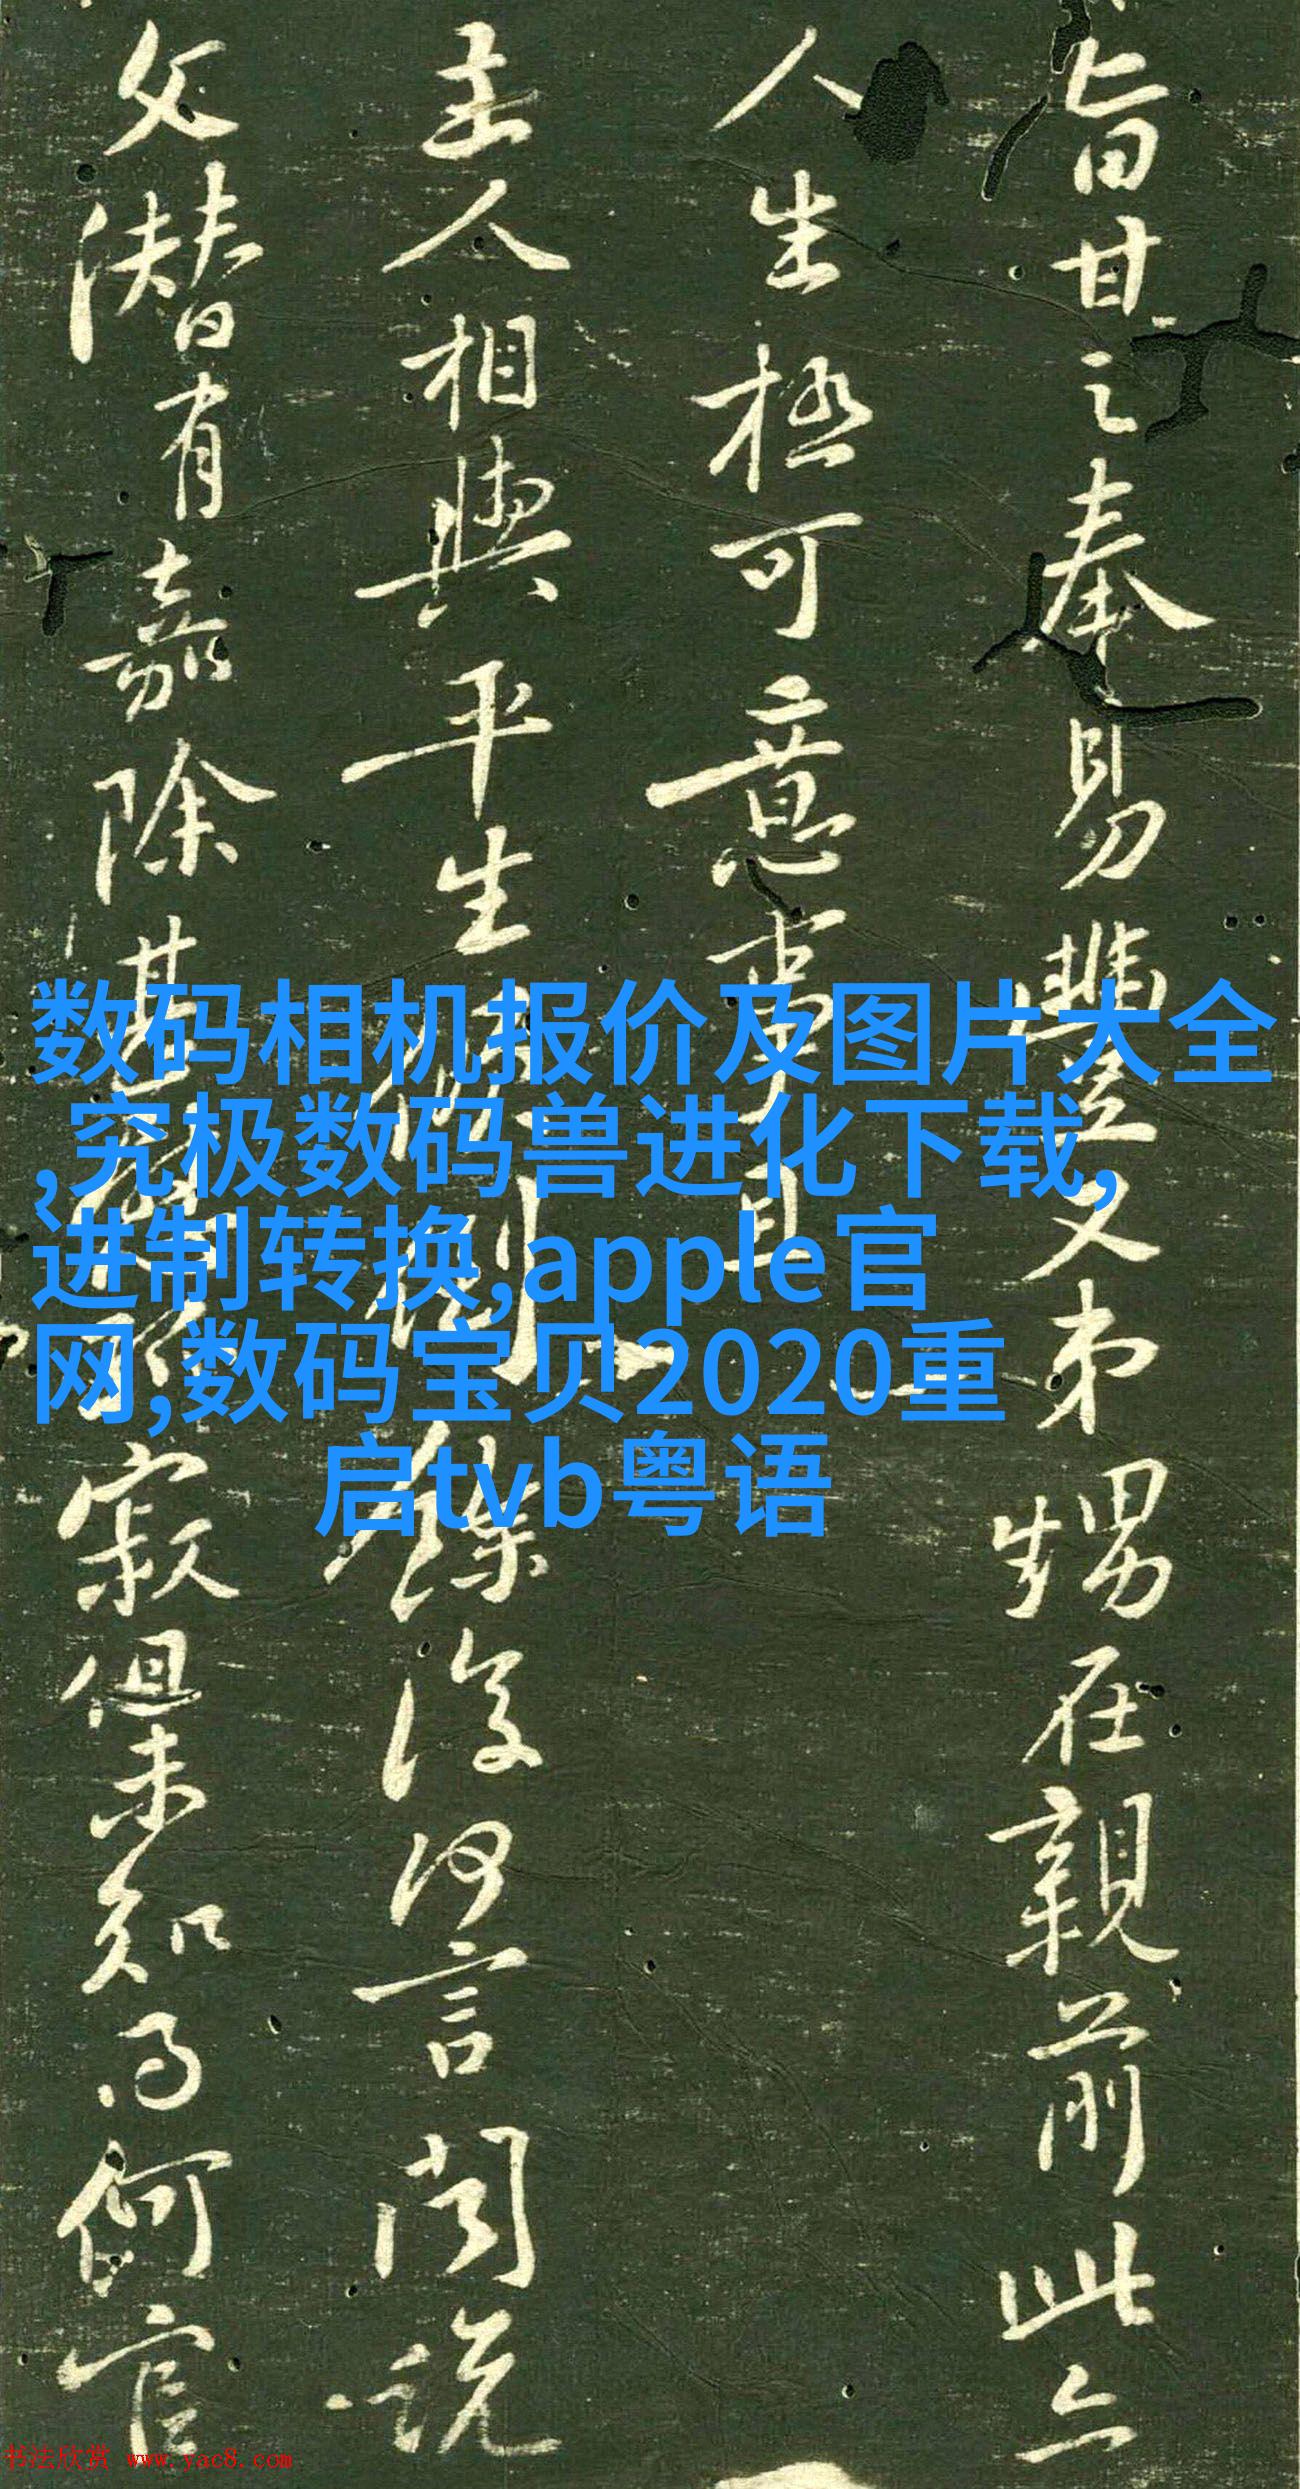 旨甘之奉易豐又弟甥在親前此亦
人生極可意事耳
主人相與平生 餘復何言閒説
父潛有嘉除甚 寂但未知得何官
数码相机报价及图片大全
,究极数码兽进化下载,
进制转换,apple官
网,数码宝贝2020重
启tvb粤语
书法欣赏 www.yac8.com